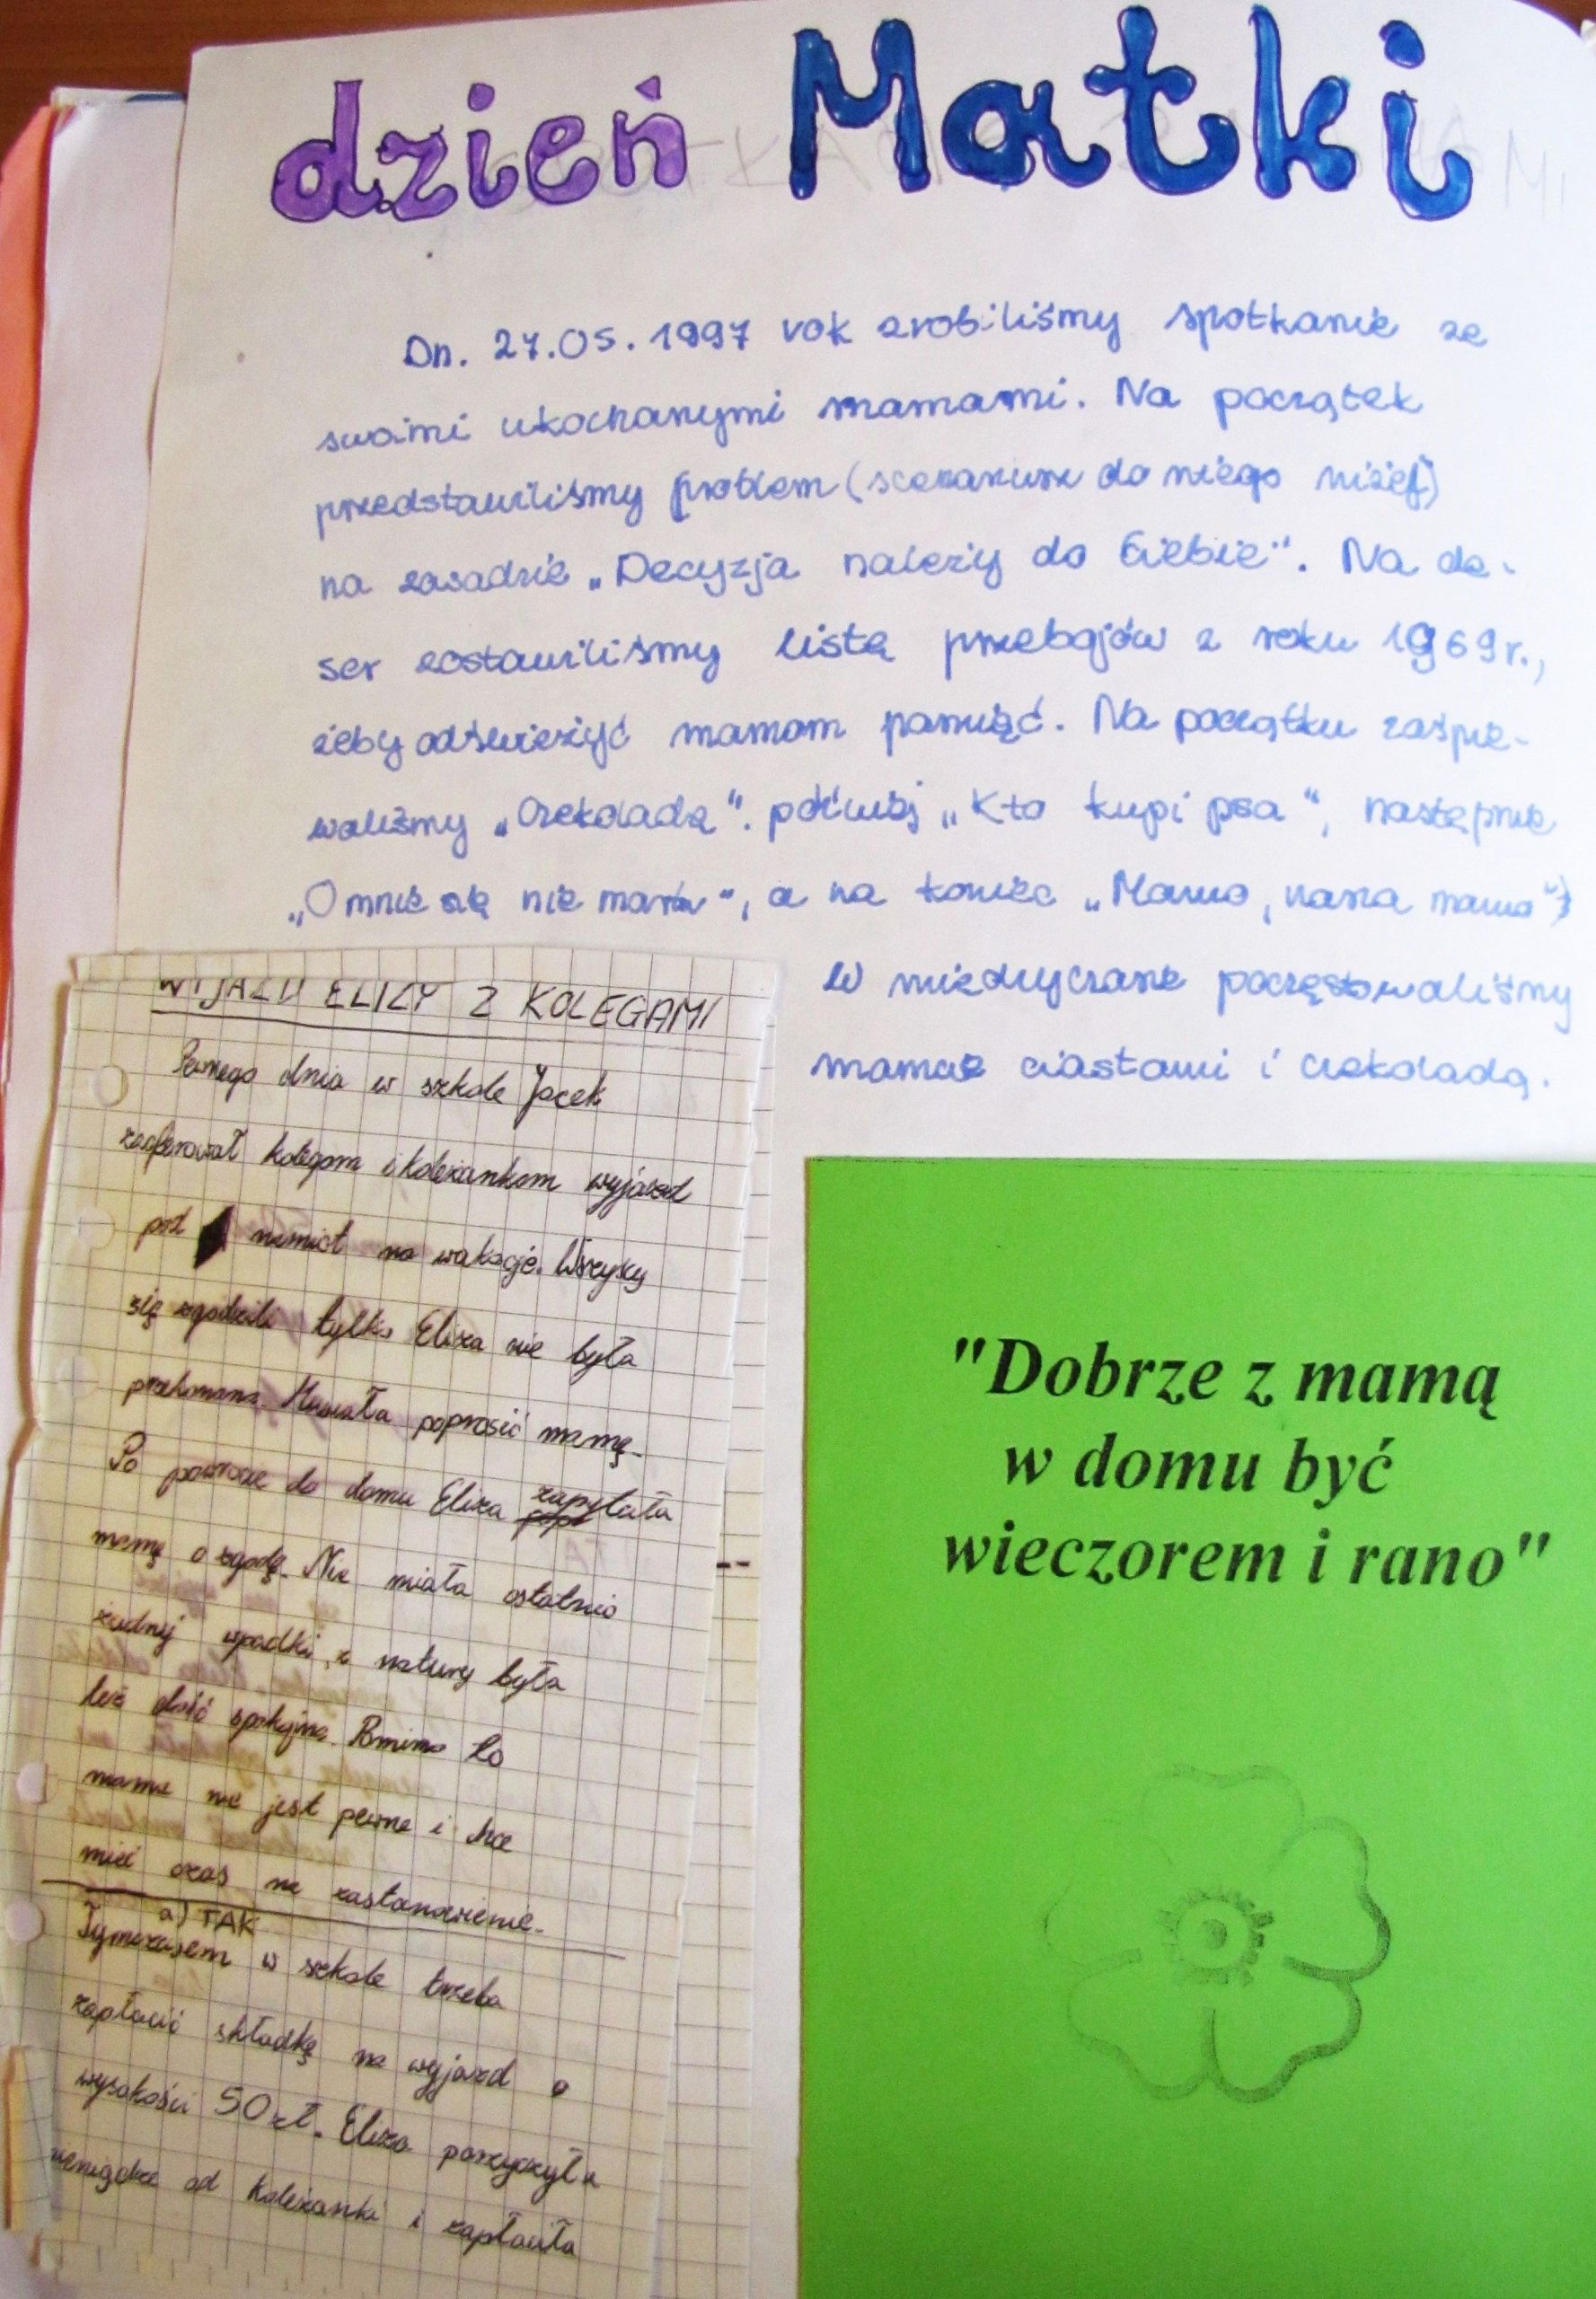 dzień Matki
Dn. 27.05.1997 rok zrobiliśmy spotkanie ze
swoimi ukochanymi mamami. Na początek
przedstawiliśmy problem (scenariusz do niego niżej)
na zasadzie „Decyzja należy do Ciebie". Na de-
ser zostawiliśmy listę przebojów z roku 1969r.,
żeby odświeżyć mamom pamięć. Na początku zaśpie-
waliśmy „Czekoladę". później „Kto kupi psa", następnie
„O mnie się nie martw", a na koniec „Mamo, nasza mamo")
W międzyczasie poczęstowaliśmy
mamy ciastami i czekoladą.
WYJAZD ELIZY Z KOLEGAMI
Pewnego dnia w szkole Jacek
zaoferował kolegom i koleżankom wyjazd
pod namiot na wakacje. Wszyscy
się zgodzili tylko Eliza nie była
przekonana. Musiała poprosić mamę.
Po powrocie do domu Eliza zapytała
mamę o zgodę. Nie miała ostatnio
żadnej wpadki, z natury była
też dość spokojna. Pomimo to
mama nie jest pewna i chce
mieć czas na zastanowienie.
a) TAK
Tymczasem w szkole trzeba
zapłacić składkę na wyjazd o
wysokości 50 zł. Eliza pożyczyła
pieniądze od koleżanki i zapłaciła
"Dobrze z mamą
w domu być
wieczorem i rano"